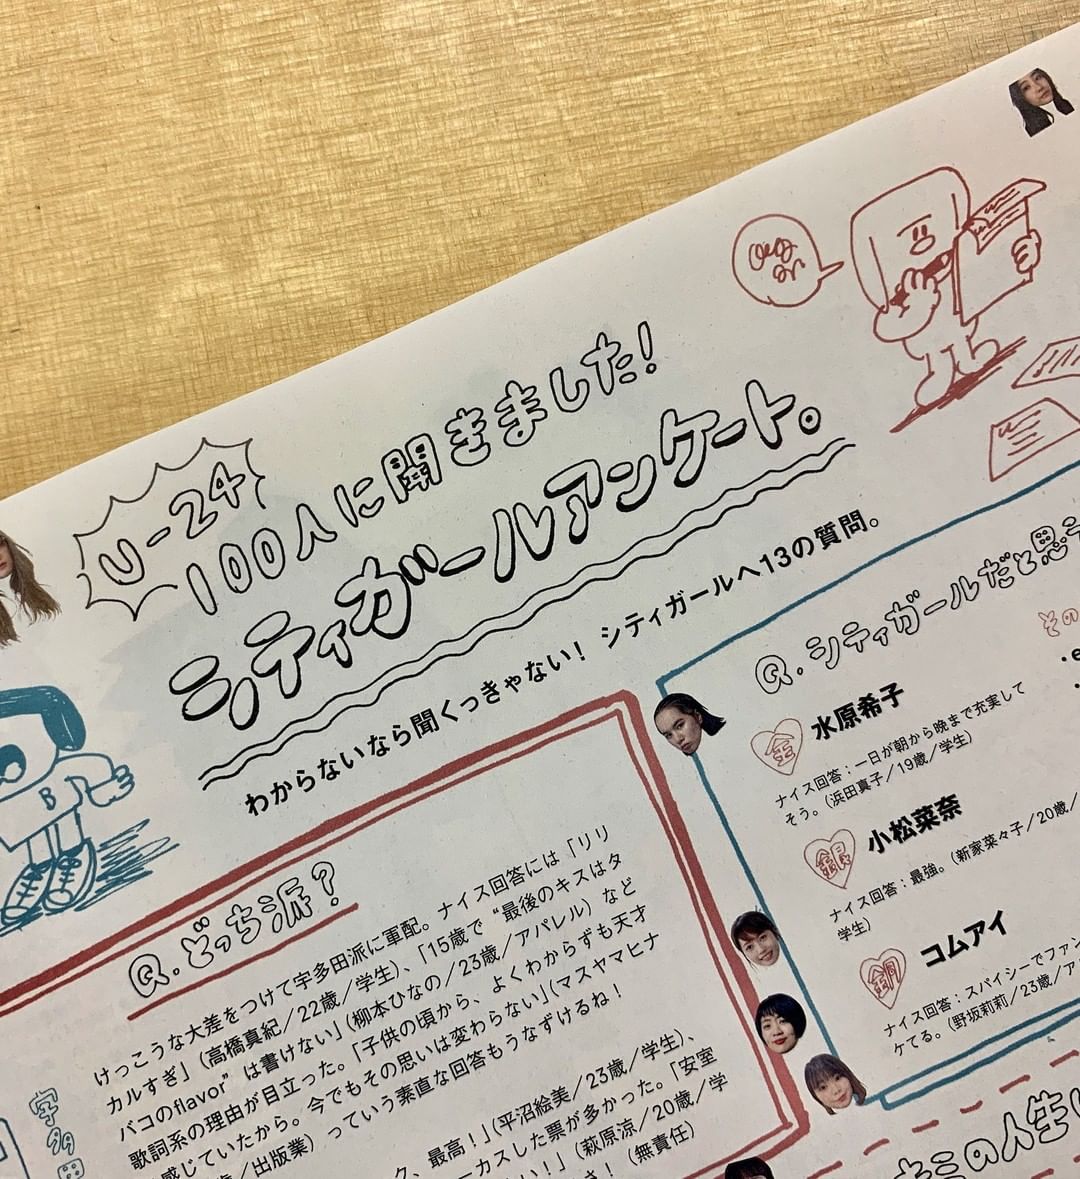 U-24
100人に聞きました!
シティガールアンケート。
わからないなら聞くっきゃない! シティガールへ13の質問。
Q.どっち派?
けっこうな大差をつけて宇多田派に軍配。ナイス回答には「リリ
カルすぎ」(高橋真紀/22歳/学生)、「15歳で“最後のキスはタ
バコのflavor”は書けない」(柳本ひなの/23歳/アパレル)など
歌詞系の理由が目立った。「子供の頃から、よくわからずも天才
感じていたから。今でもその思いは変わらない」(マスヤマヒナ
/出版業)っていう素直な回答もうなずけるね!
ク、最高!」(平沼絵美/23歳/学生)、
ーカスした票が多かった。「安室
い!」(萩原涼/20歳/学
さ!(無責任)
宇多田
Q.シティガールだと思う
その
金
水原希子
ナイス回答:一日が朝から晩まで充実して
そう。(浜田真子/19歳/学生)
銀
小松菜奈
ナイス回答:最強。(新家菜々子/20歳/
学生)
銅
コムアイ
ナイス回答:スパイシーでファン
ケてる。(野坂莉莉/23歳/ア
の人生
B